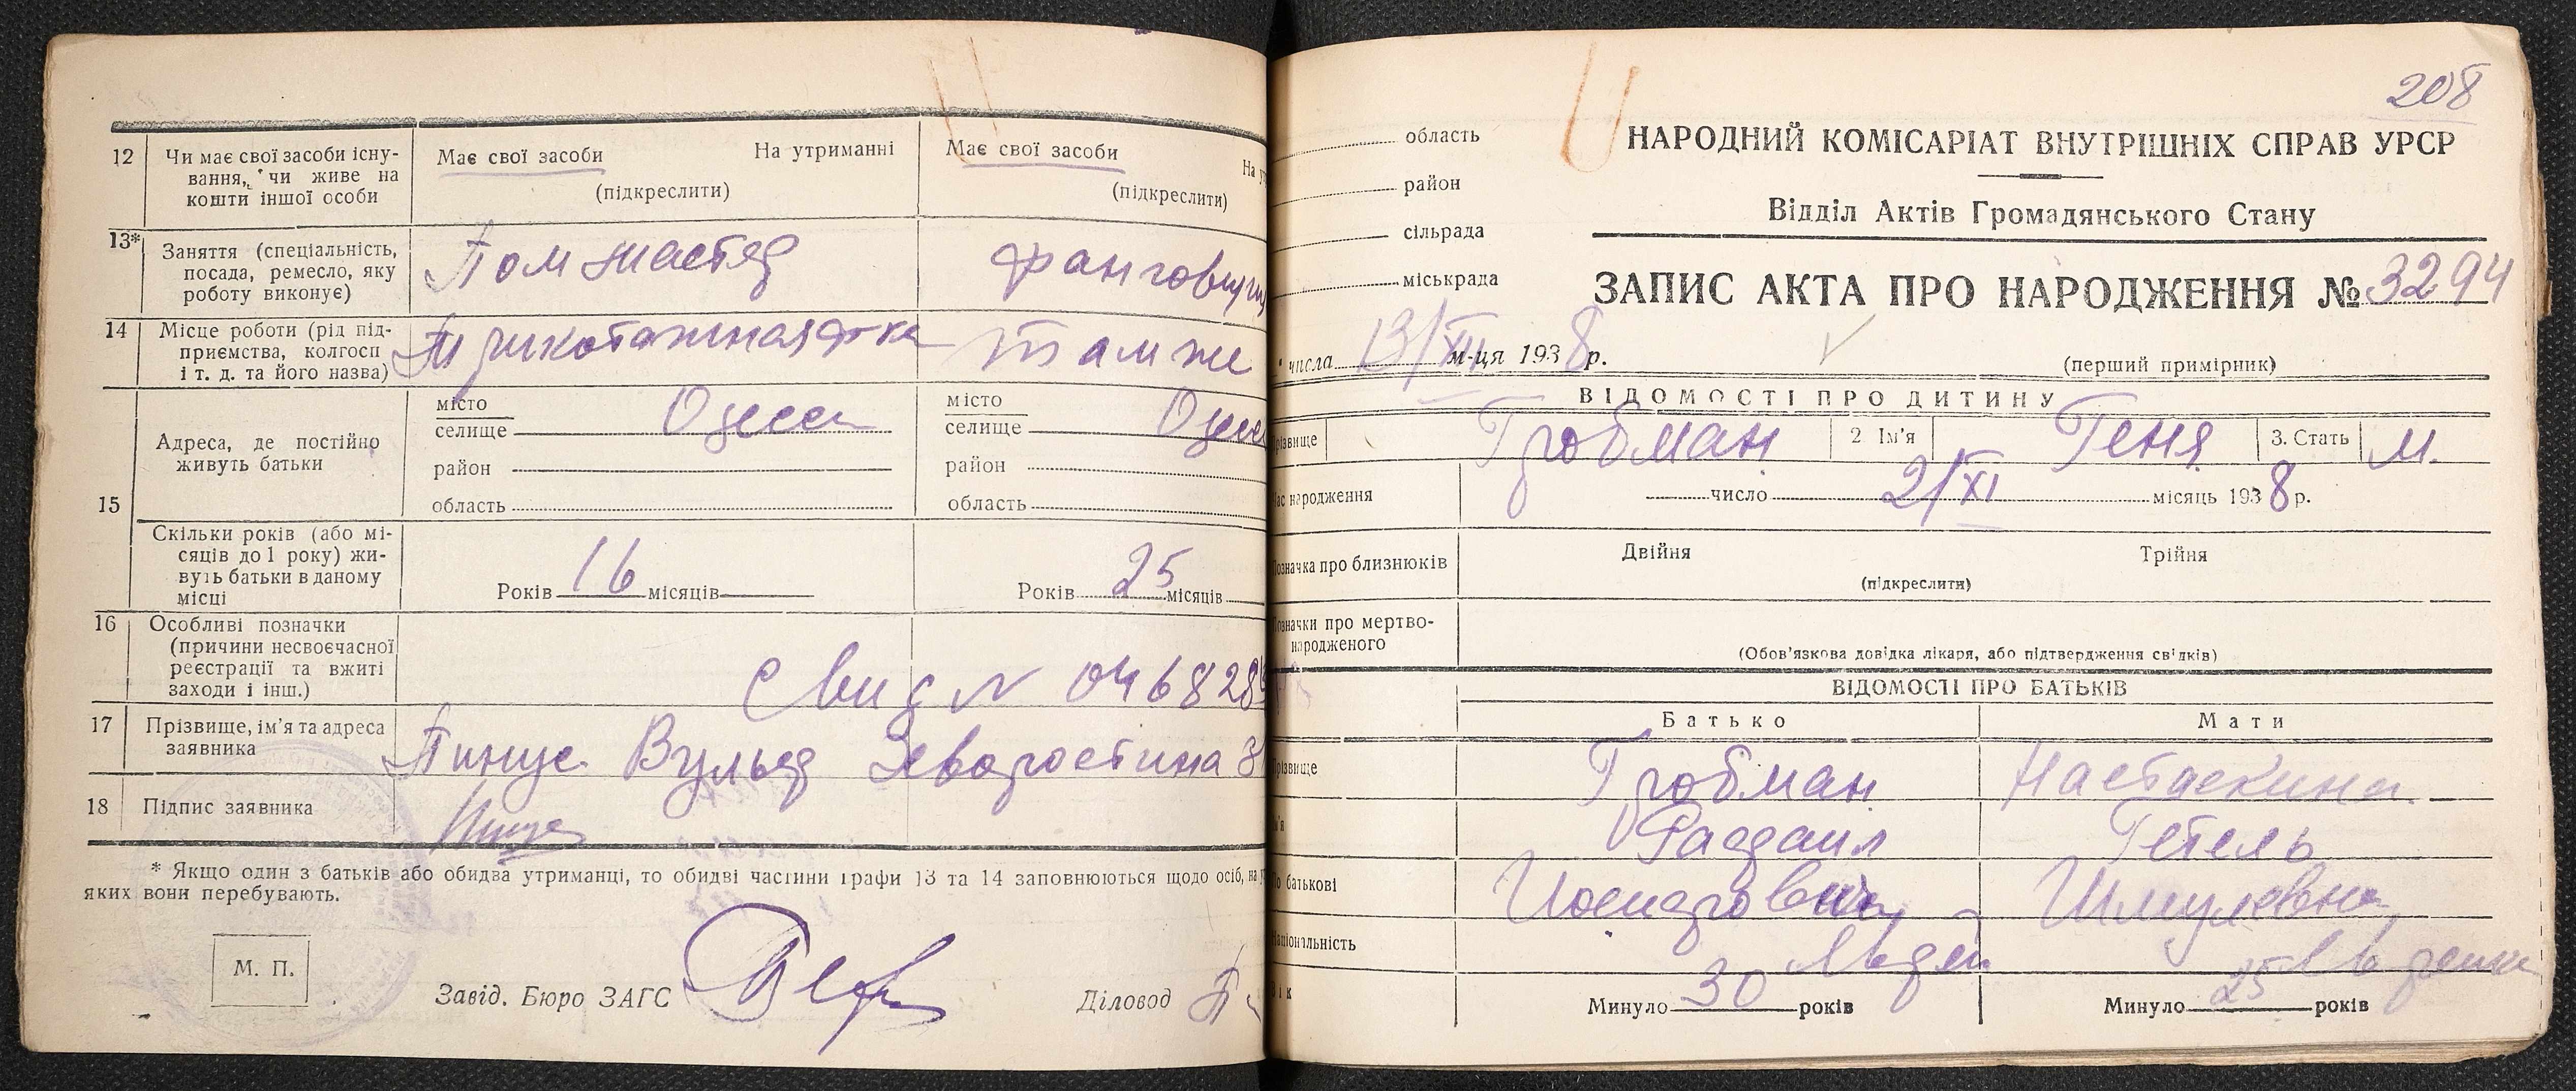 12 Чи має свої засоби існу-
вання, чи живе на
кошти іншої особи
Має свої засоби На утриманні
(підкреслити)
Має свої засоби На
(підкреслити)
13* Заняття (спеціальність,
посада, ремесло, яку
роботу виконує)
Пом мастер
14 Місце роботи (рід під-
приємства, колгосп
і т. д. та його назва)
Трикотажная ф-ка
там же
15 Адреса, де постійно
живуть батьки
місто
селище Одеса
район
область
місто
селище
район
область
Скільки років (або мі-
сяців до 1 року) жи-
вуть батьки в даному
місці
Років 16 місяців
Років 25 місяців
16 Особливі позначки
(причини несвоєчасної
реєстрації та вжиті
заходи і інш.)
Свид N
17 Прізвище, ім'я та адреса
заявника
Пинус
18 Підпис заявника
* Якщо один з батьків або обидва утриманці, то обидві частини графи 13 та 14 заповнюються щодо осіб, на
яких вони перебувають.
М. П.
Завід. Бюро ЗАГС
Діловод
208
область
район
сільрада
міськрада
НАРОДНИЙ КОМІСАРІАТ ВНУТРІШНІХ СПРАВ УРСР
Відділ Актів Громадянського Стану
ЗАПИС АКТА ПРО НАРОДЖЕННЯ № 3294
числа 13/XII м-ця 1938 р.
(перший примірник)
ВІДОМОСТІ ПРО ДИТИНУ
різвище Гробман 2. Ім'я Геня 3. Стать М.
ас народження число 21/XI місяць 1938 р.
означка про близнюків Двійня Трійня
(підкреслити)
означки про мертво-
народженого
(Обов'язкова довідка лікаря, або підтвердження свідків)
ВІДОМОСТІ ПРО БАТЬКІВ
Батько Мати
різвище Гробман Настаскина
м'я Рафаил Гетель
о батькові Шмулевна
Національність
Вік
Минуло 30 років
Минуло 25 років